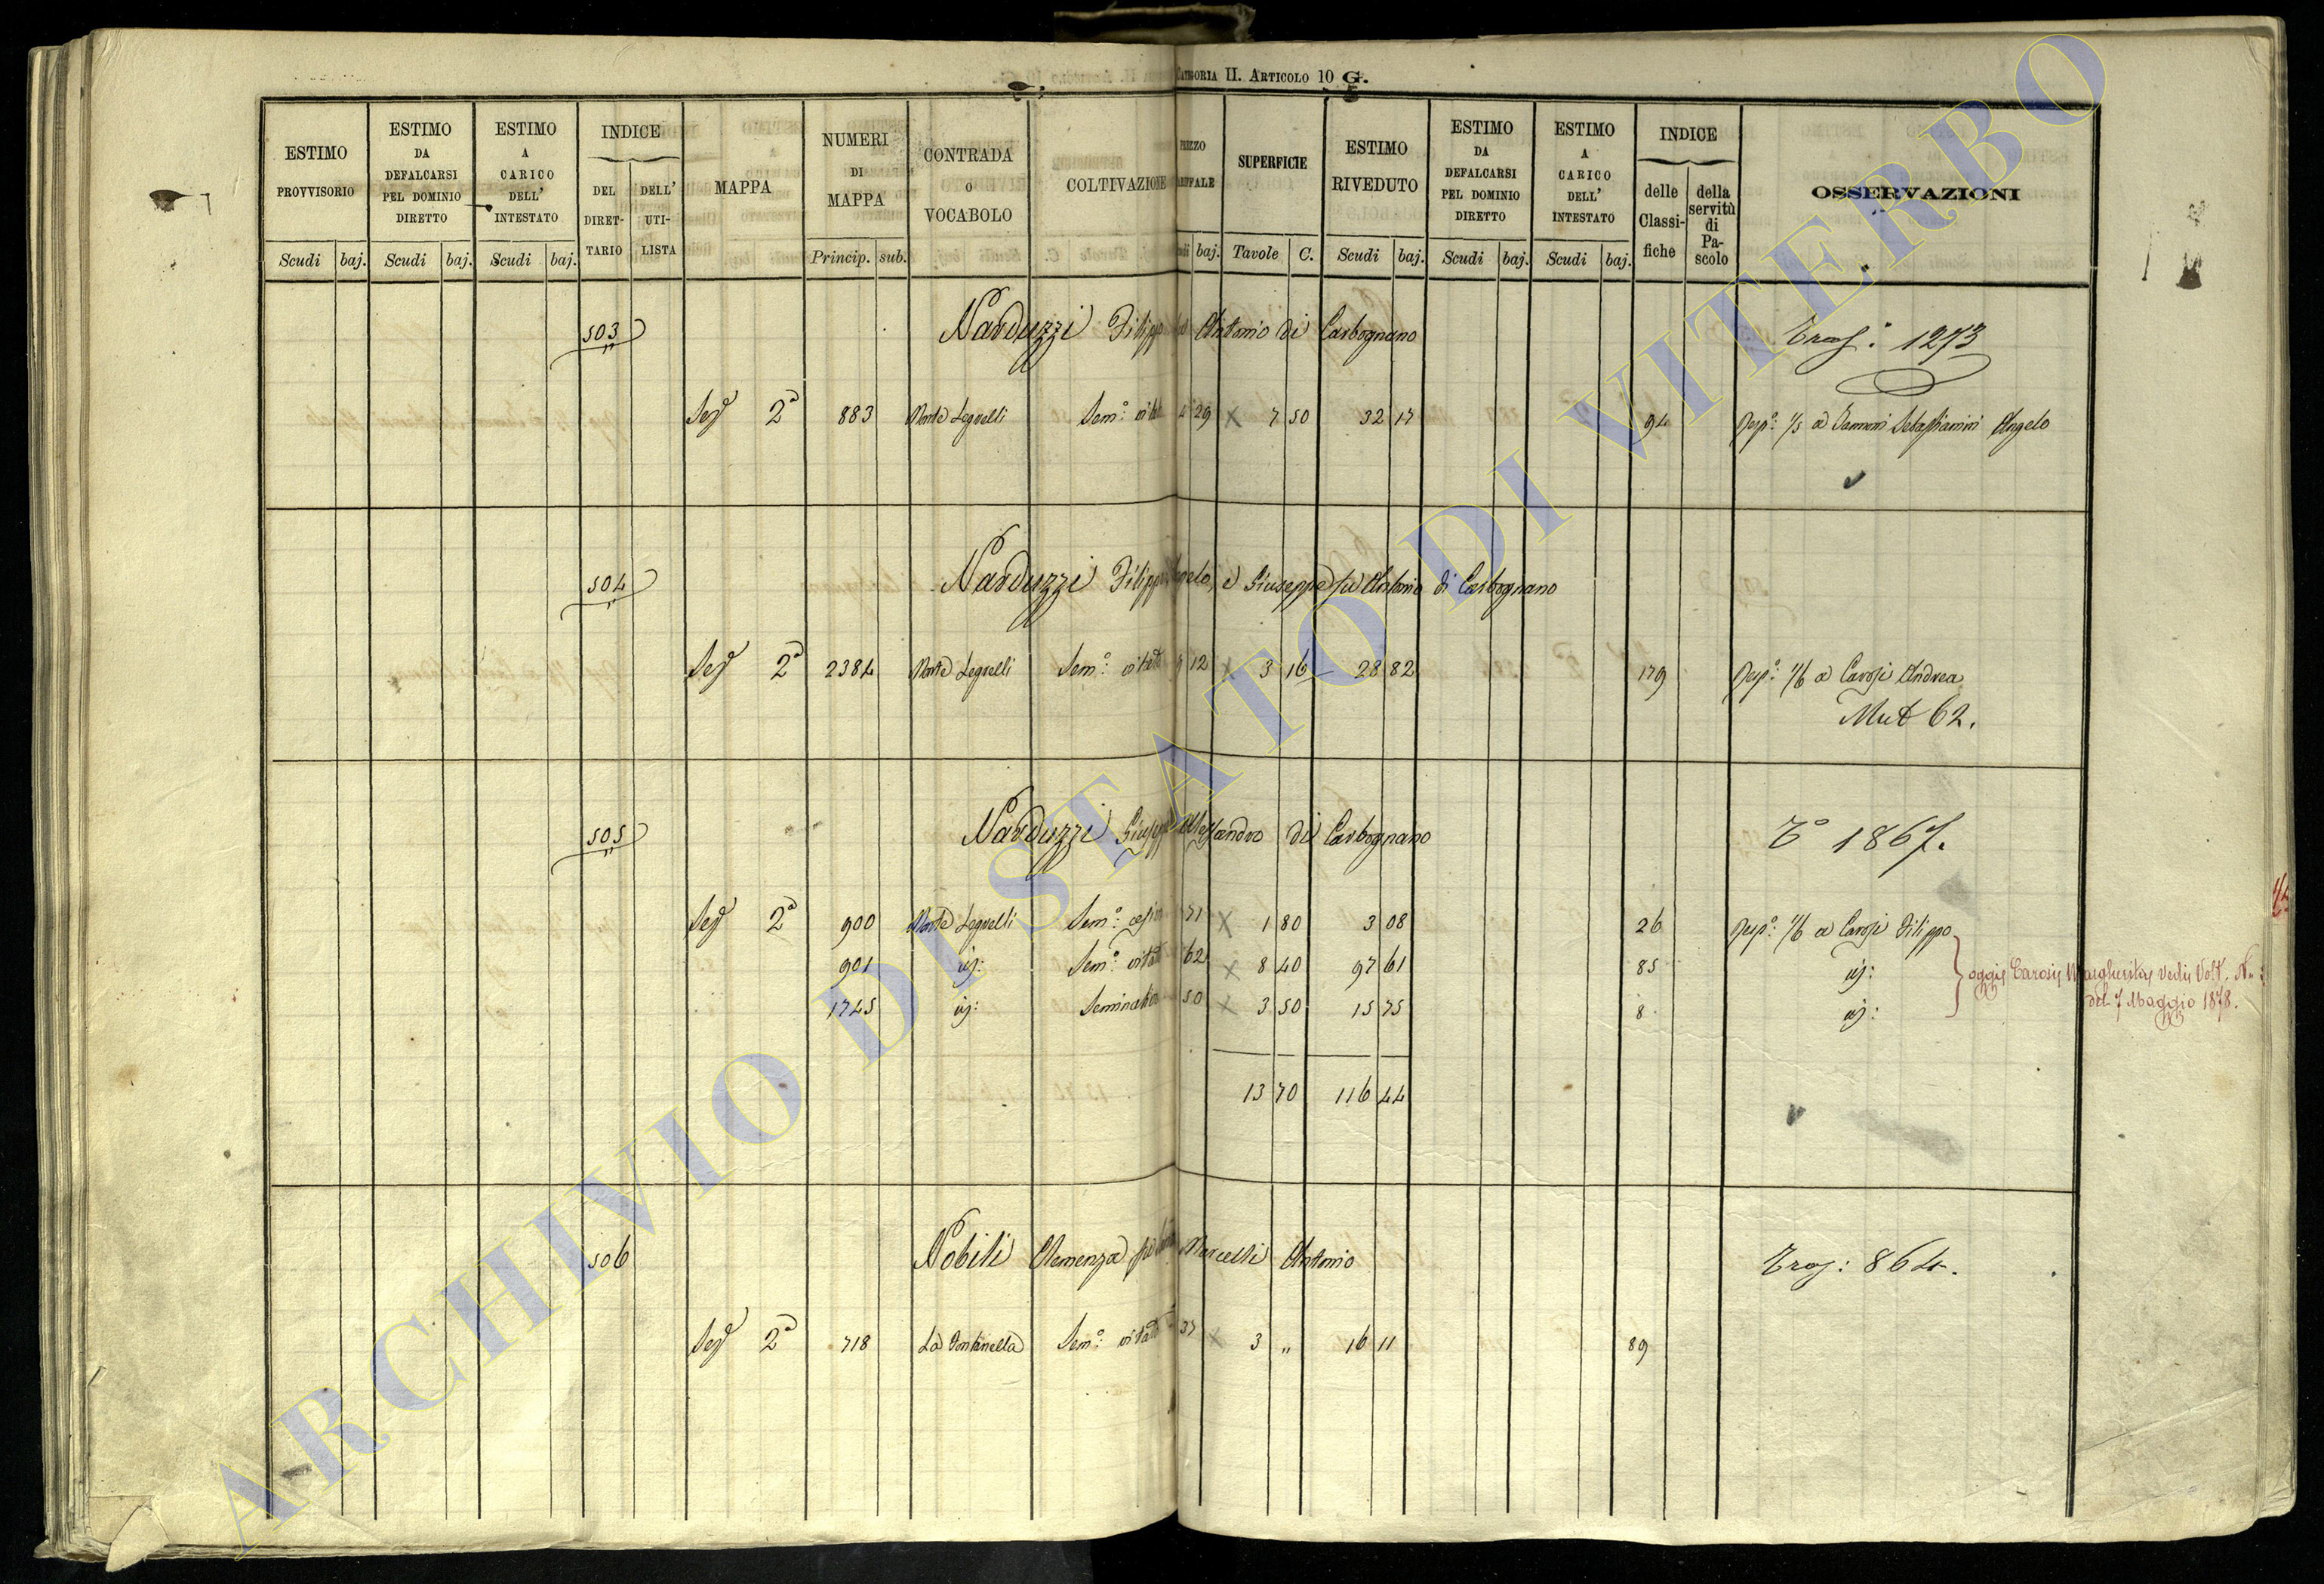 CATEGORIA II. ARTICOLO 10 G.
ESTIMO PROVVISORIO
ESTIMO DA DEFALCARSI PEL DOMINIO DIRETTO
ESTIMO A CARICO DELL' INTESTATO
INDICE
DEL DIRETTARIO
DELL' UTILISTA
MAPPA
NUMERI DI MAPPA
CONTRADA O VOCABOLO
COLTIVAZIONE
SUPERFICIE
ESTIMO RIVEDUTO
ESTIMO DA DEFALCARSI PEL DOMINIO DIRETTO
ESTIMO A CARICO DELL' INTESTATO
INDICE
delle Classifiche
della servitù di Pascolo
OSSERVAZIONI
Scudi baj. Scudi baj. Scudi baj. Princip. sub. baj. Tavole C. Scudi baj. Scudi baj. Scudi baj.
503 Narduzzi Filippo Antonio di Carbognano 1273
Sez 2ª 883 Monte Legnelli Sem.º vitato 4 29 X 7 50 32 17 94 Resp.º 1/5 a Sebastianini Angelo
504 Narduzzi Filippo, e Giuseppe fu Antonio di Carbognano
Sez 2ª 2384 Monte Legnelli Sem.º vitato 9 12 X 3 16 28 82 179 Resp.º 1/6 a Carosi Andrea
Mut 62.
505 Narduzzi Giuseppe Alessandro di Carbognano 1867.
Sez 2ª 900 Monte Legnelli Sem.º 71 X 1 80 3 08 26 Resp.º 1/6 a Carosi Filippo
901 id: Sem.º vitato 62 X 8 40 97 61 85 id:
oggi Carosi Margherita Vedi Volt. N.
1745 id: Seminativo 50 X 3 50 15 75 8 id:
del 7 Maggio 1878.
13 70 116 44
506 Nobili Clemenza Marcelli Antonio 864.
Sez 2ª 718 La Fontanella Sem.º vitato 37 X 3 " 16 11 89
ARCHIVIO DI STATO DI VITERBO